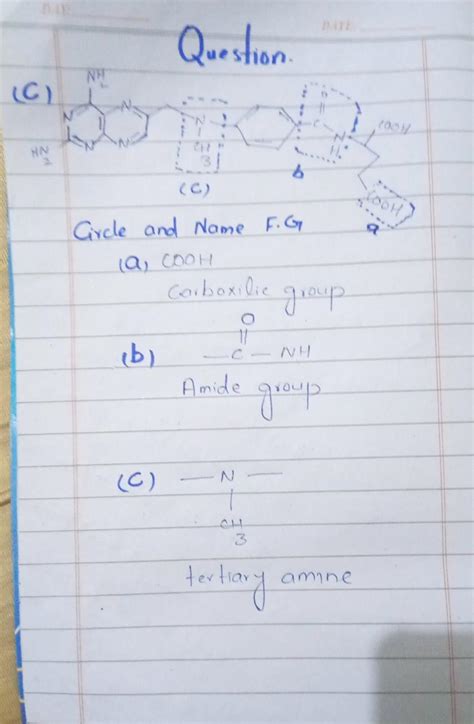 DATE
DATE
Question.
(C)
NH2
N
N
N
N
N
H2N
N
CH3
O
C
N
H
COOH
COOH
(C)
b
a
Circle and Name F.G
(a) COOH
Carboxilic group
O
(b) — C — NH
Amide group
(C) — N —
CH3
tertiary amine